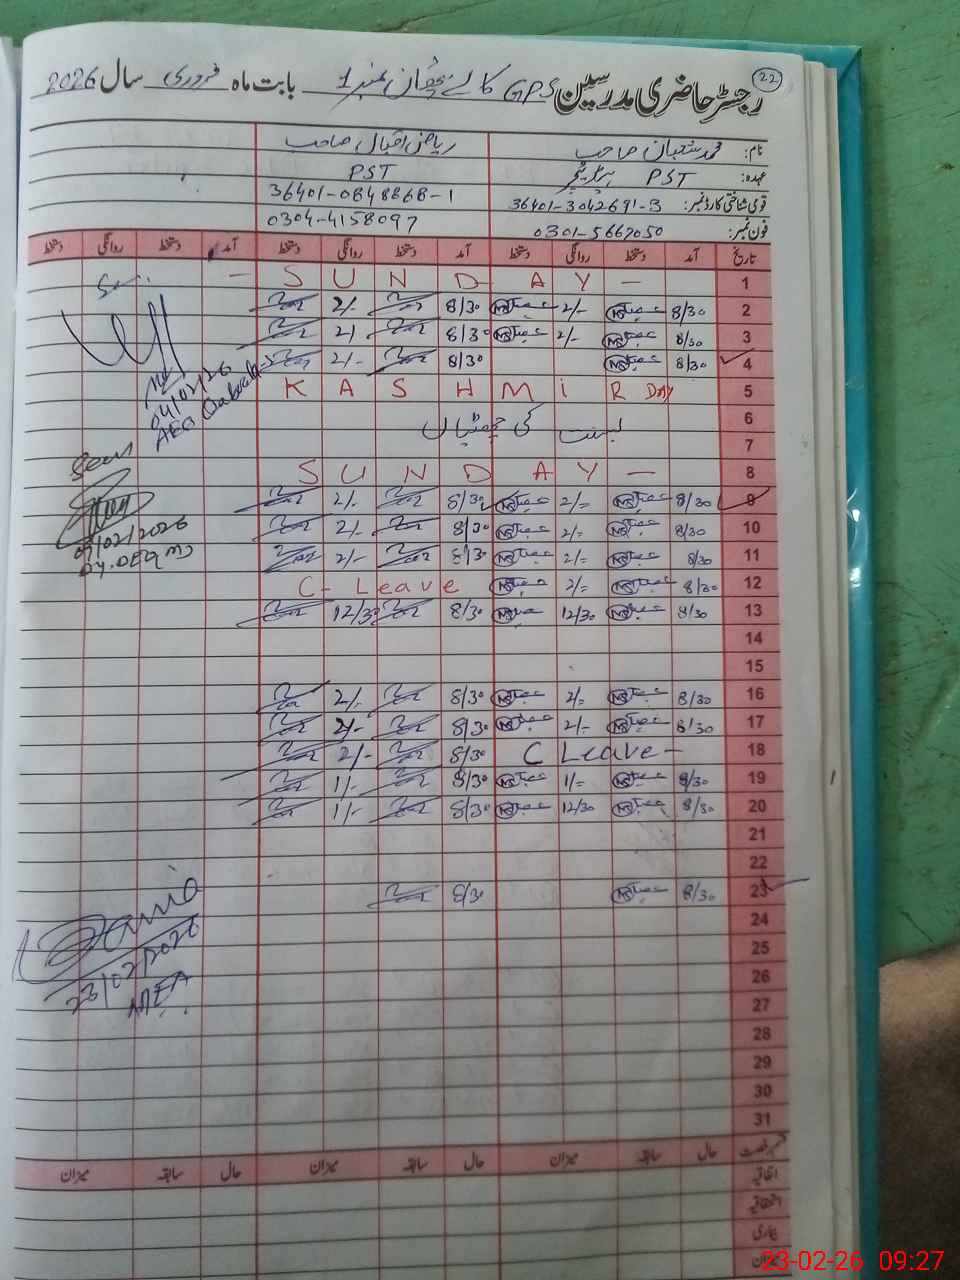 22
رجسٹر حاضری مدرسین GPS کالے پٹھان نمبر 1 بابت ماہ فروری سال 2026
نام: محمد شعبان صاحب ریاض اقبال صاحب
عہدہ: PST ہیڈ ٹیچر PST
قومی شناختی کارڈ نمبر: 36401-3042691-3 36401-0848868-1
فون نمبر: 0301-5667050 0304-4158097
تاریخ آمد دستخط روانگی دستخط آمد دستخط روانگی دستخط آمد دستخط روانگی دستخط
1 - SUNDAY -
2 8/30 2/- 8/30 2/-
3 8/30 2/- 8/30 2/-
4 8/30 8/30 2/-
5 KASHMiR Day
6 بسنت کی چھٹیاں
7
8 SUNDAY -
9 8/30 2/= 8/30 2/-
10 8/30 2/= 8/30 2/-
11 8/30 2/= 8/30 2/-
12 8/30 2/= C- Leave
13 8/30 12/30 8/30 12/30
14
15
16 8/30 2/= 8/30 2/-
17 8/30 2/- 8/30 2/-
18 C Leave - 8/30 2/-
19 8/30 1/= 8/30 1/-
20 8/30 12/30 8/30 1/-
21
22
23 8/30 8/30
24
25
26
27
28
29
30
31
04/02/26
AEO
Seen
09/02/2026
Dy. DEO
23/02/2026
MEA
حال سابقہ میزان حال سابقہ میزان حال سابقہ میزان
اتفاقیہ
استحقاقیہ
بیماری
میزان
23-02-26 09:27